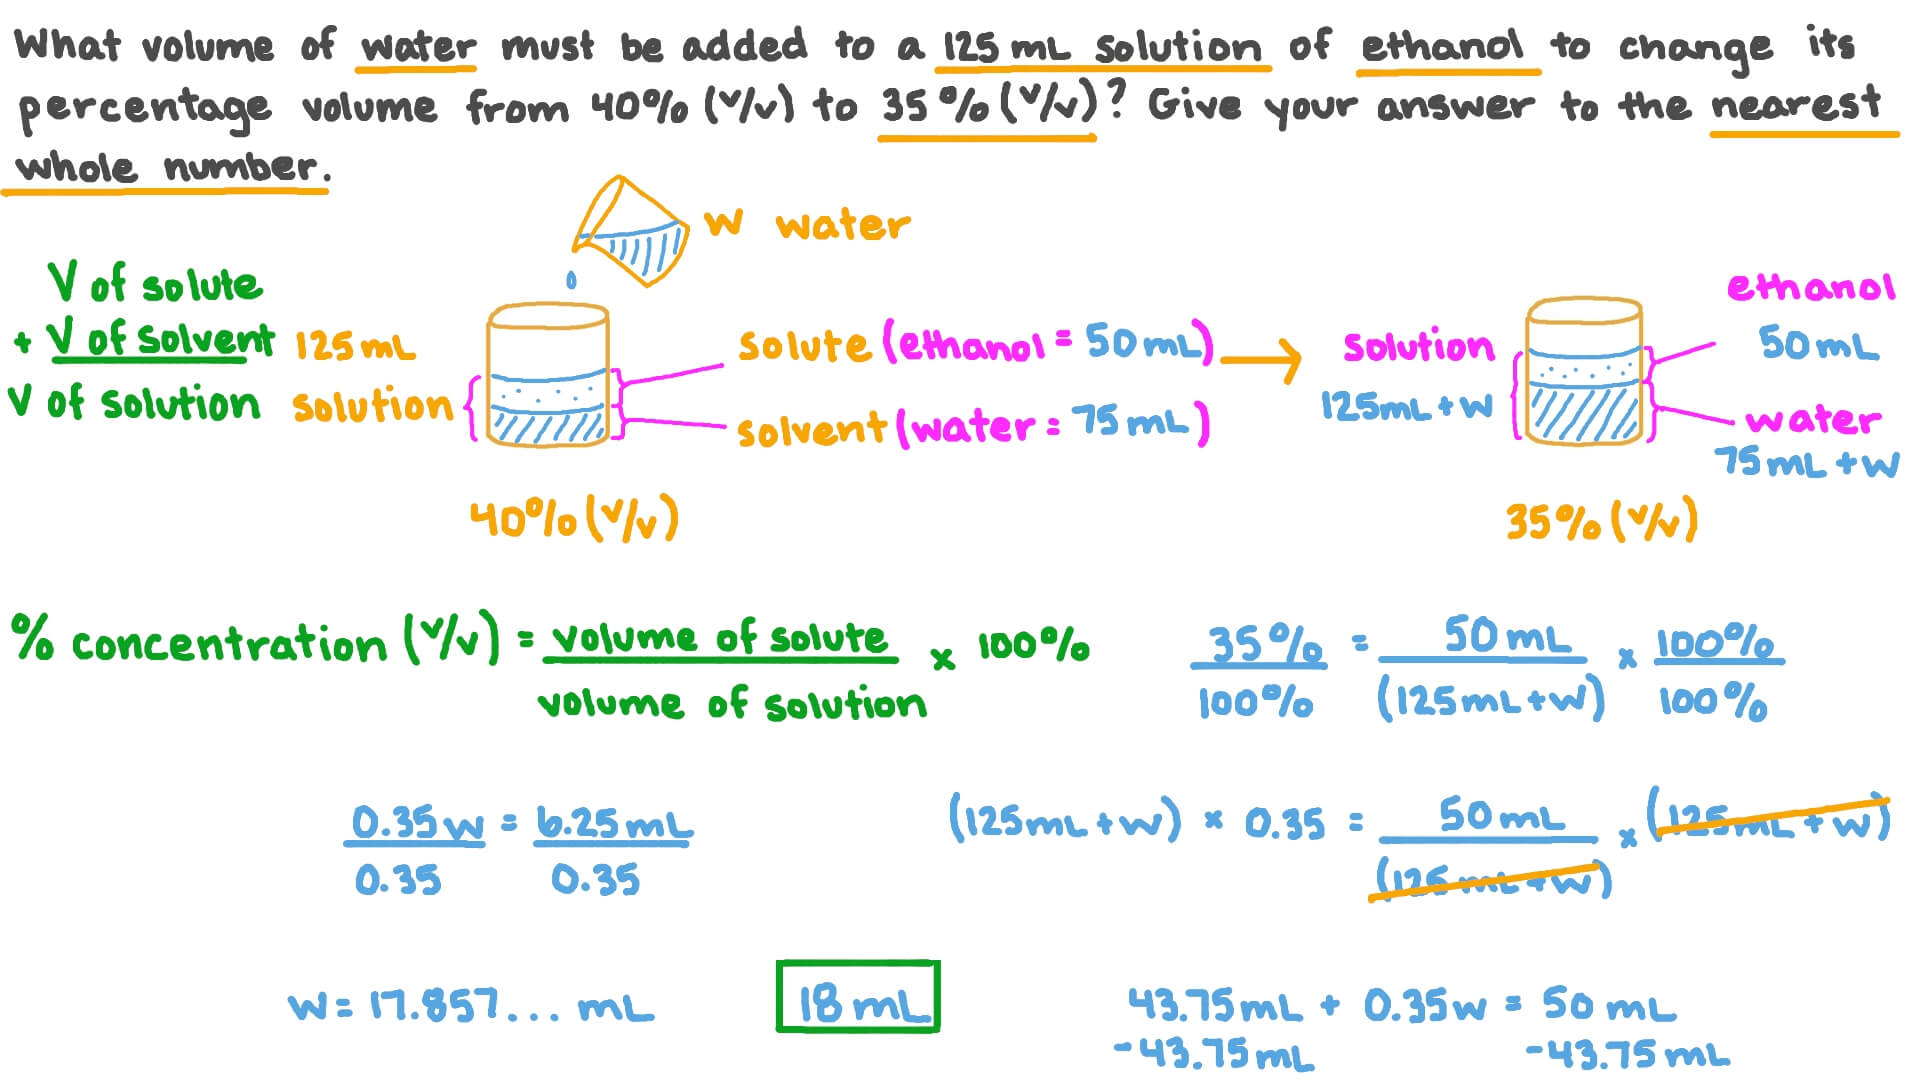 What volume of water must be added to a 125 mL solution of ethanol to change its
percentage volume from 40% (v/v) to 35% (v/v)? Give your answer to the nearest
whole number.
w water
V of solute
+ V of solvent
V of solution
125 mL
solution
solute (ethanol = 50 mL)
solvent (water = 75 mL)
40% (v/v)
solution
125mL + w
ethanol
50 mL
water
75mL + w
35% (v/v)
% concentration (v/v) = volume of solute / volume of solution × 100%
35% / 100% = 50 mL / (125mL + w) × 100% / 100%
(125mL + w) × 0.35 = 50 mL / (125 mL + w) × (125 mL + w)
43.75mL + 0.35w = 50 mL
-43.75mL -43.75mL
0.35w / 0.35 = 6.25mL / 0.35
w = 17.857... mL
18 mL